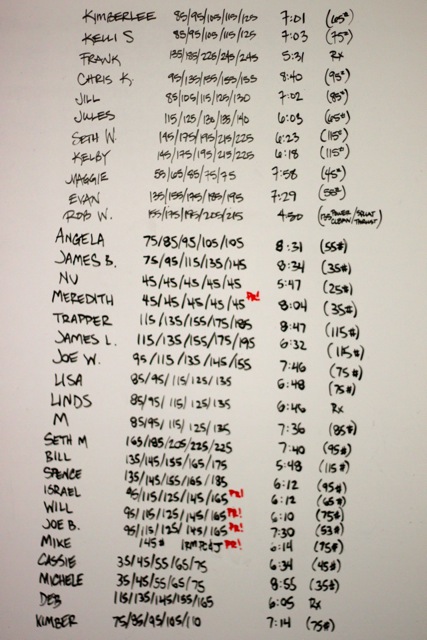 KIMBERLEE 85/95/105/115/125 7:01 (65#)
KELLI S 85/95/105/115/125 7:03 (75#)
FRANK 135/185/225/245/245 5:31 Rx
CHRIS K. 95/135/155/155/155 8:40 (95#)
JILL 85/105/115/125/130 7:02 (85#)
JULES 115/125/130/135/140 6:03 (65#)
SETH W. 145/175/195/215/225 6:23 (115#)
KELBY 145/175/195/215/225 6:18 (115#)
MAGGIE 55/65/65/75/75 7:58 (45#)
EVAN 135/155/175/185/195 7:29 (55#)
ROB W. 155/175/195/205/215 4:50 (135 POWER CLEAN/ SQUAT THRUST)
ANGELA 75/85/95/105/105 8:31 (55#)
JAMES B. 75/95/115/135/145 8:34 (35#)
NV 45/45/45/45/45 5:47 (25#)
MEREDITH 45/45/45/45/45 PR! 8:04 (35#)
TRAPPER 115/135/155/175/185 8:47 (115#)
JAMES L. 115/135/155/175/195 6:32 (115#)
JOE W. 95/115/135/145/155 7:46 (75#)
LISA 85/95/115/125/135 6:48 (75#)
LINDS 85/95/115/125/135 6:46 Rx
M 85/95/115/125/135 7:36 (85#)
SETH M 165/185/205/225/225 7:40 (95#)
BILL 135/145/155/165/175 5:48 (115#)
SPENCE 135/145/155/165/185 6:12 (95#)
ISRAEL 95/115/125/145/165 PR! 6:12 (65#)
WILL 95/115/125/145/165 PR! 6:10 (75#)
JOE B. 95/115/125/145/165 PR! 7:30 (53#)
MIKE 145# 1RM PC&J PR! 6:14 (75#)
CASSIE 35/45/55/65/75 6:34 (45#)
MICHELE 35/45/55/65/75 8:55 (35#)
DEB 115/135/145/155/165 6:05 Rx
KIMBER 75/85/95/105/110 7:14 (75#)